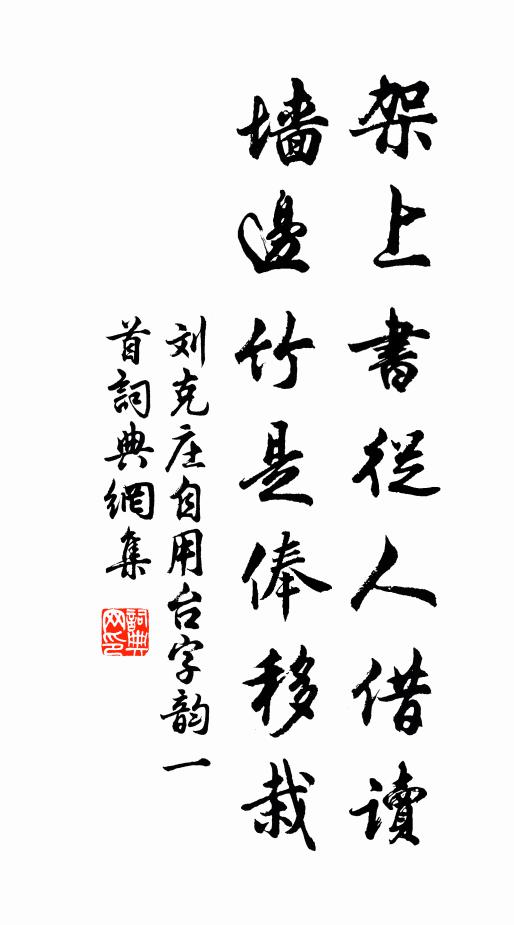 架上書從人借讀
墙邊竹是俸移栽
刘克庄自用台字韵一
首詞典網集
詞典
网印